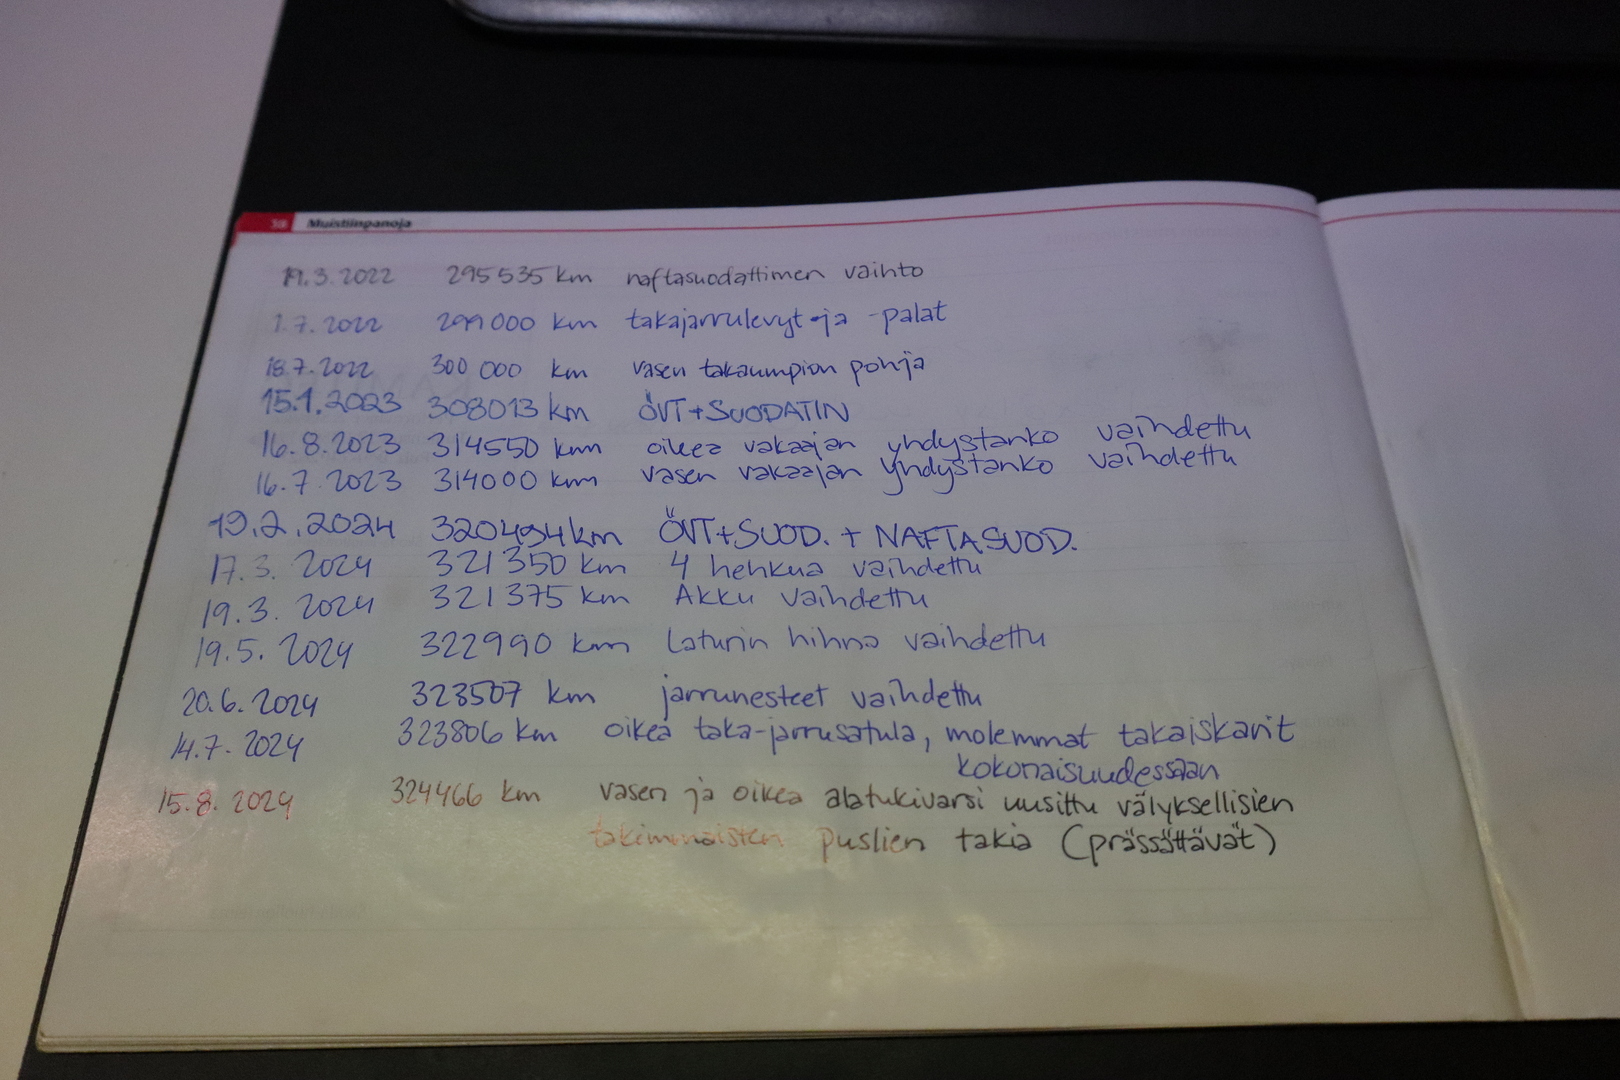 Muistiinpanoja
19.3.2022 295535 km naftasuodattimen vaihto
1.7.2022 299000 km takajarrulevyt ja -palat
18.7.2022 300 000 km vasen takaumpion pohja
15.1.2023 308013 km ÖVT+SUODATIN
16.8.2023 314550 km oikea vakaajan yhdystanko vaihdettu
16.7.2023 314000 km vasen vakaajan yhdystanko vaihdettu
19.2.2024 320494 km ÖVT+SUOD. + NAFTASUOD.
17.3. 2024 321350 km 4 hehkua vaihdettu
19.3. 2024 321375 km Akku vaihdettu
19.5. 2024 322990 km Laturin hihna vaihdettu
20.6. 2024 323507 km jarrunesteet vaihdettu
14.7. 2024 323806 km oikea taka-jarrusatula, molemmat takaiskarit
kokonaisuudessaan
15.8. 2024 324466 km vasen ja oikea alatukivarsi uusittu välyksellisien
takimmaisten puslien takia (prässättävät)